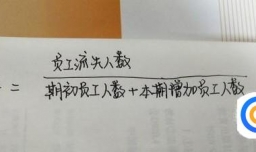 员工流失人数
= 期初员工人数+本期增加员工人数